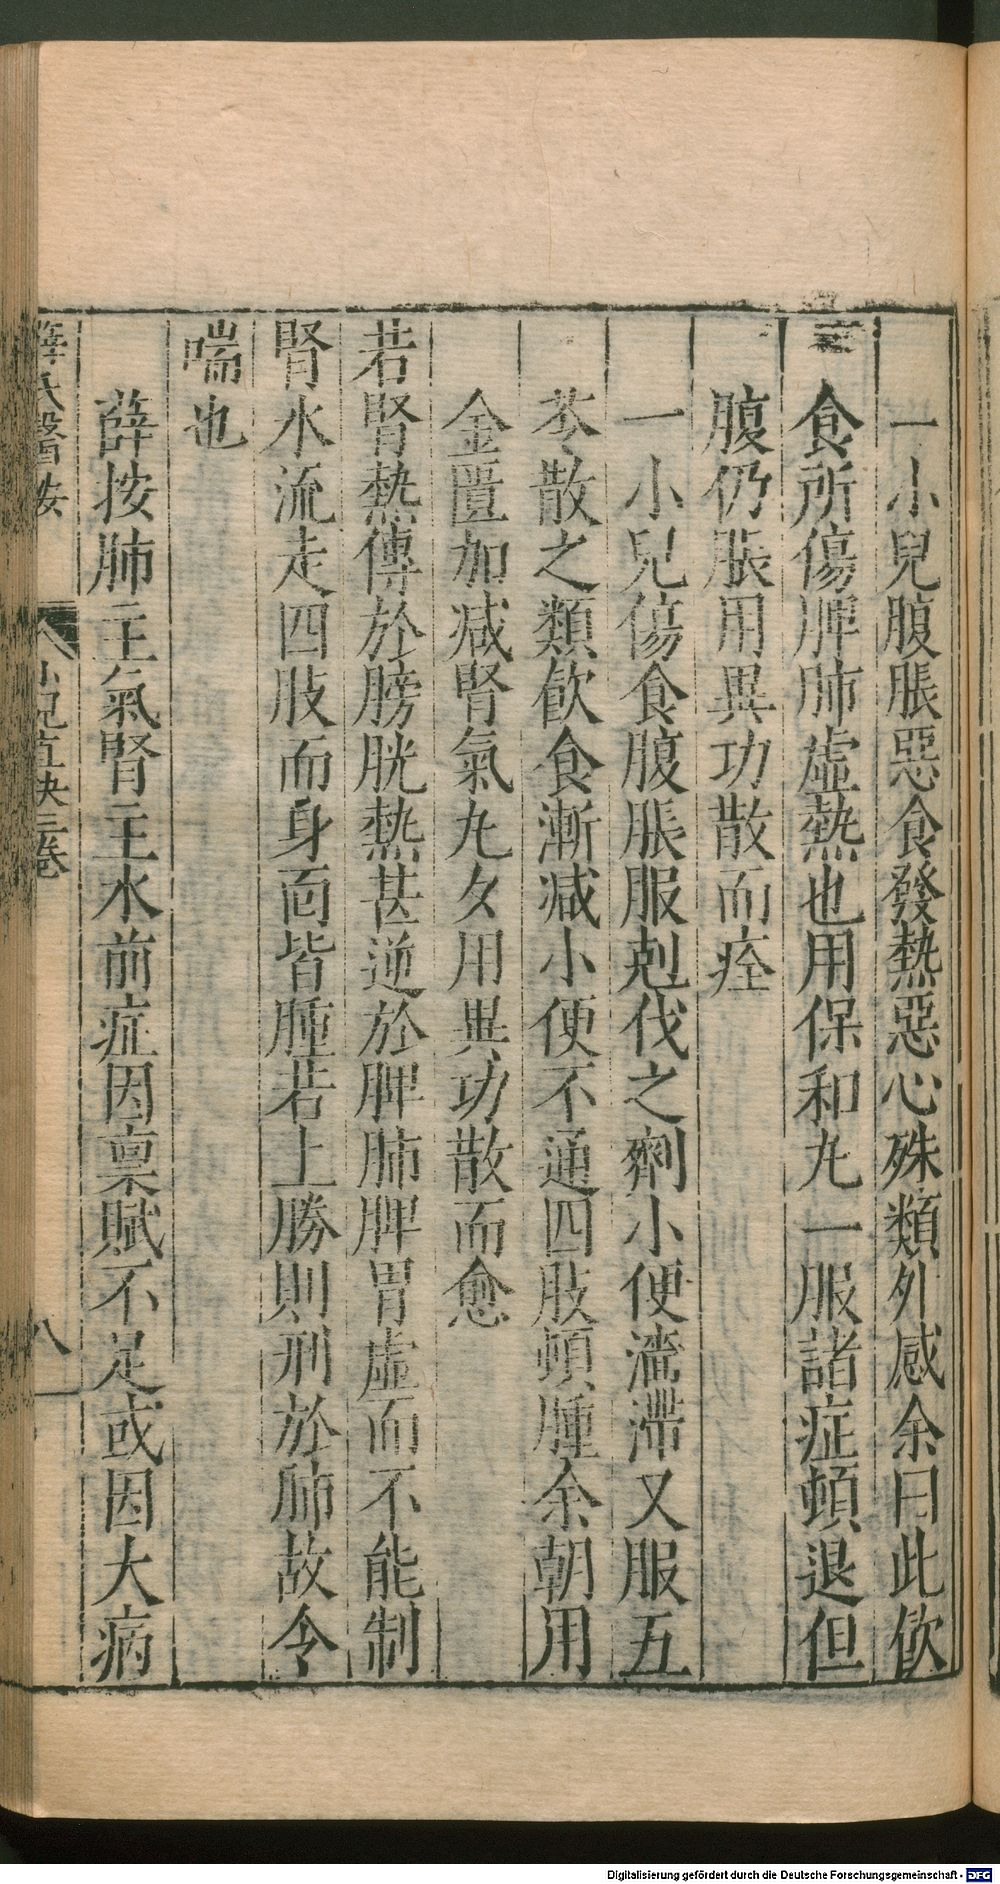 一小兒腹脹惡食發熱惡心殊類外感余曰此飲
食所傷脾肺虛熱也用保和丸一服諸症頓退但
腹仍脹用異功散而痊
一小兒傷食腹脹服剋伐之劑小便濇滯又服五
苓散之類飲食漸减小便不通四肢頓腫余朝用
金匱加减腎氣丸夕用異功散而愈
若腎熱傳於膀胱熱甚逆於脾肺脾胃虛而不能制
腎水流走四肢而身面皆腫若上勝則刑於肺故令
喘也
薛按肺主氣腎主水前症因禀賦不足或因大病
薛氏醫按 小兒直訣三卷 八
Digitalisierung gefördert durch die Deutsche Forschungsgemeinschaft - DFG